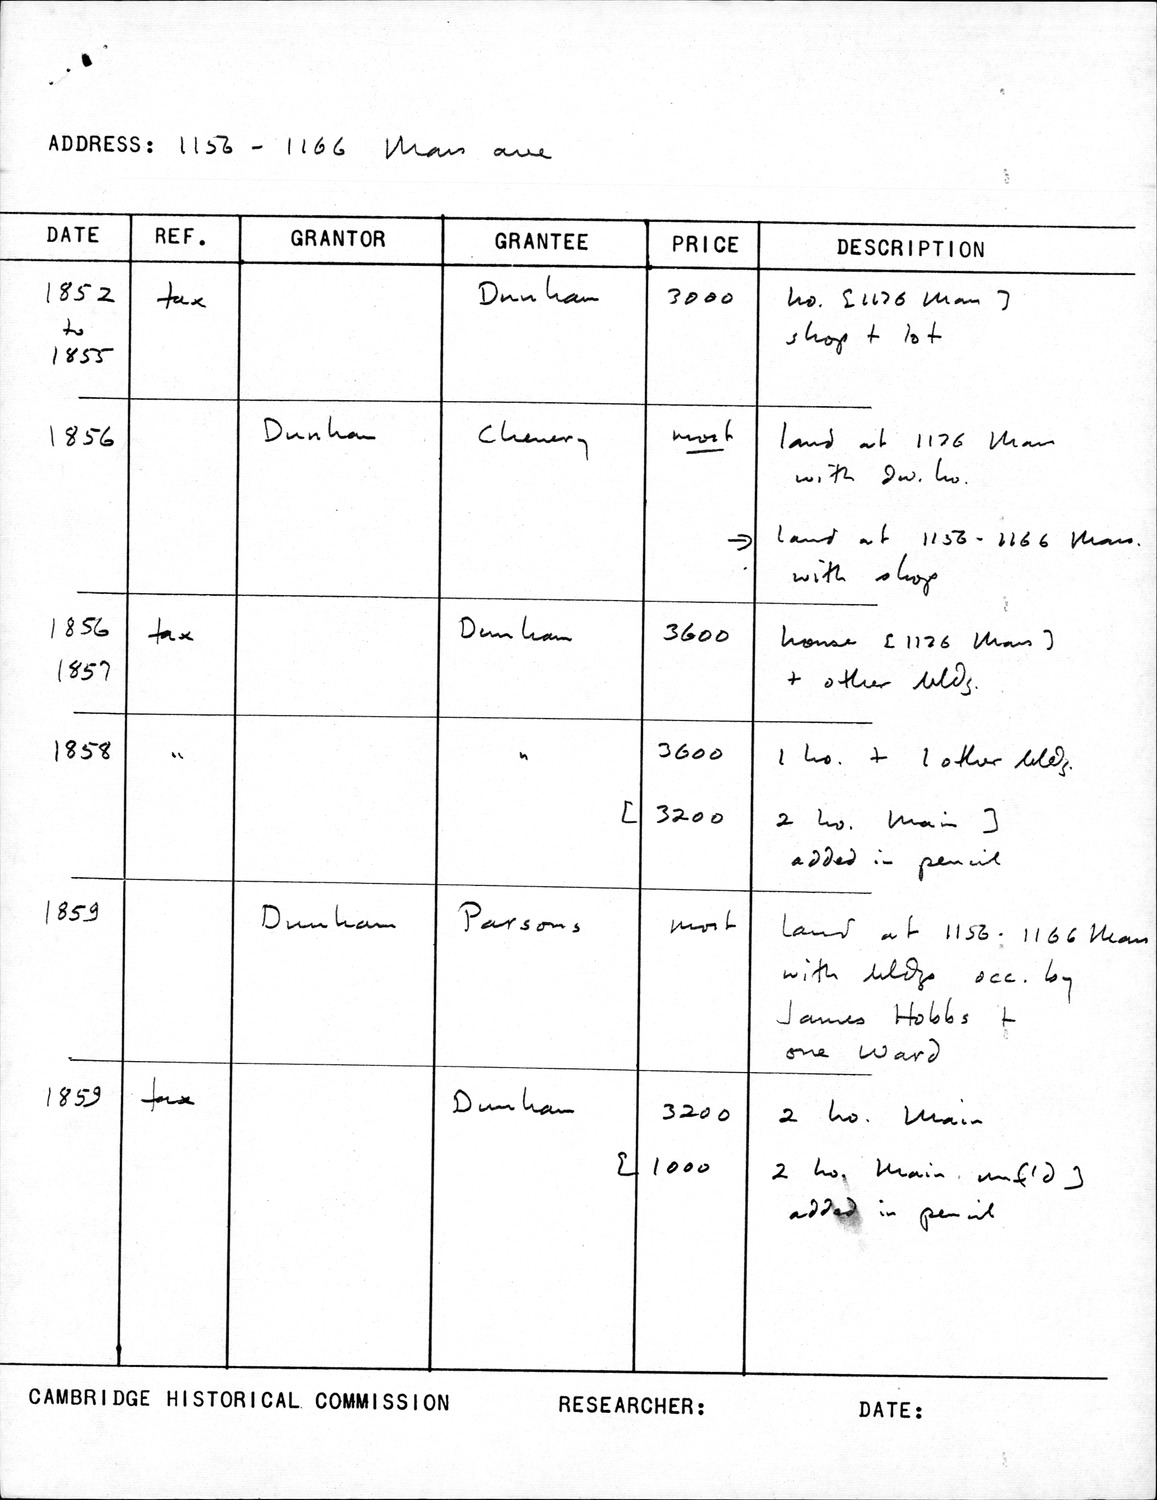 ADDRESS: 1156 - 1166 Mass ave
DATE REF. GRANTOR GRANTEE PRICE DESCRIPTION
1852 tax Dunham 3000 ho. [1126 Mass]
to shop + lot
1855
1856 Dunham Chenery mort land at 1126 Mass
with dw. ho.
→ land at 1156 - 1166 Mass.
with shop
1856 tax Dunham 3600 house [1126 Mass]
1857 + other bldg.
1858 " " 3600 1 ho. + 1 other bldg.
[ 3200 2 ho. Main ]
added in pencil
1859 Dunham Parsons mort land at 1156 - 1166 Mass
with bldgs occ. by
James Hobbs +
one Ward
1859 tax Dunham 3200 2 ho. Main
[ 1000 2 ho. Main unf'd ]
added in pencil
CAMBRIDGE HISTORICAL COMMISSION RESEARCHER: DATE: